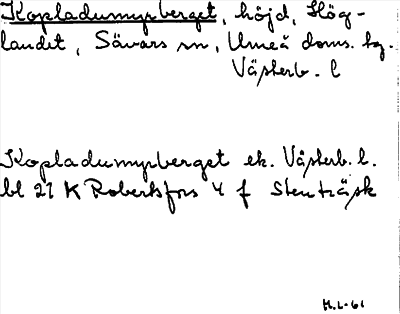 Kopladumyrberget, höjd, Hög-
landet, Sävars sn, Umeå doms. tg.
Västerb. l
Kopladumyrberget ek. Västerb. l.
bl 21 K Robertsfors 4 f Stenträsk
H.L-61